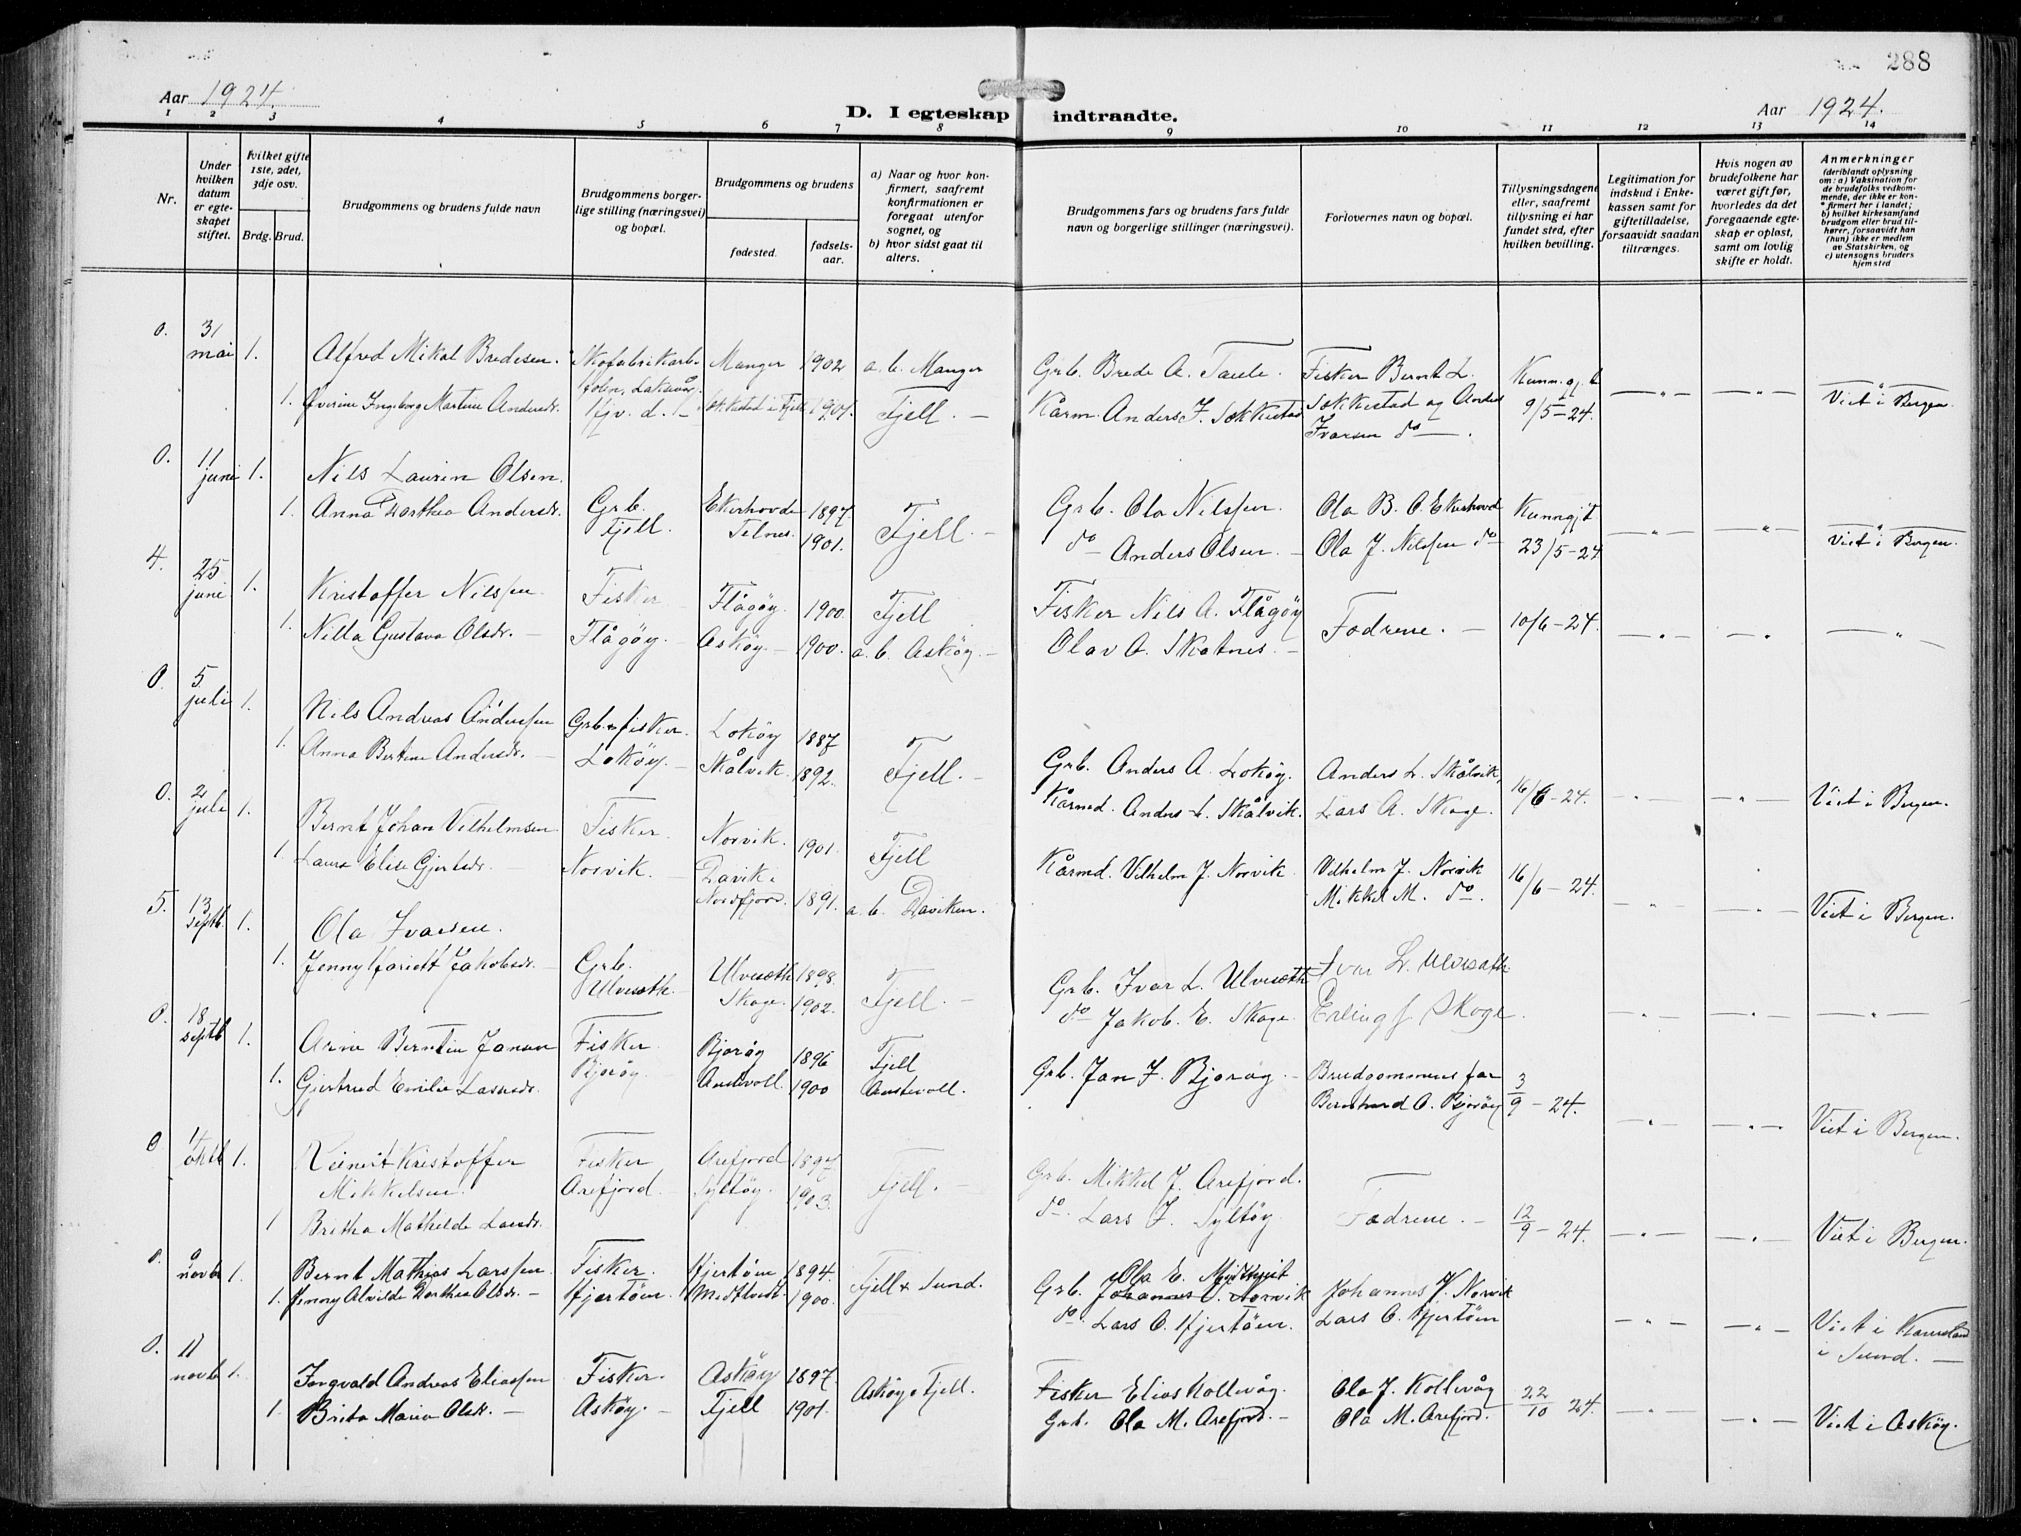 288
Aar 1924.
D. I egteskap indtraadte.
Aar 1924.
1 2 3 4 5 6 7 8 9 10 11 12 13 14
Nr.
Under hvilken datum er egteskapet stiftet.
Hvilket gifte 1ste, 2det, 3dje osv.
Brdg. Brud.
Brudgommens og brudens fulde navn
Brudgommens borgerlige stilling (næringsvei) og bopæl.
Brudgommens og brudens
fødested.
fødselsaar.
a) Naar og hvor konfirmert, saafremt konfirmationen er foregaat utenfor sognet, og
b) hvor sidst gaat til alters.
Brudgommens fars og brudens fars fulde navn og borgerlige stillinger (næringsvei).
Forlovernes navn og bopæl.
Tillysningsdagene eller, saafremt tillysning ei har fundet sted, efter hvilken bevilling.
Legitimation for indskud i Enkekassen samt for giftetilladelse, forsaavidt saadan tiltrænges.
Hvis nogen av brudefolkene har været gift før, hvorledes da det foregaaende egteskap er opløst, samt om lovlig skifte er holdt.
Anmerkninger (deriblandt oplysning om: a) Vaksination for de brudefolks vedkommende, der ikke er konfirmert her i landet; b) hvilket kirkesamfund brudgom eller brud tilhører, forsaavidt han (hun) ikke er medlem av Statskirken, og c) utensogns bruders hjemsted
0. 31 mai 1. Alfred Mikal Bredesen. Skofabrikarb. Manger 1902 a. b. Manger Grb. Brede A. Taule. Fisker Bernt L. Kunngj. b
1. Øverine Ingeborg Martine Andersdr. Hjv. d. Fjell 1901 Fjell. — Kårm. Anders J. Sekkestad Sekkestad og Anders Ivarsen do — 9/5-24. — " — — " — Viet i Bergen.
0. 11 juni 1. Nils Laurin Olsen.
1. Anna Dorthea Andersdr. Grb. Fjell. Ekerhovde Telnes 1897 1901. Fjell. — Grb. Ola Nilssen Ola B. O. Ekerhovd Kunngjt
do — Anders Olsen — Ola J. Nilssen do — 23/5-24 — " — — " — Viet i Bergen.
4. 25 juni 1. Kristoffer Nilssen Fisker Flågøy. 1900. Fjell Fisker Nils A. Flågøy
1. Nilla Gustava Olsdr. — Flågøy. — Askøy. — 1900. a. b. Askøy. — Olav A. Skotnes. — Fædrene. — 10/6-24. — " — — " — — " —
0. 5 juli 1. Nils Andreas Anderssen Grb. + fisker. Lokøy 1887
1. Anna Bertine Andersdr. — Lokøy. — Skålvik. 1892. Fjell. — Grb. Anders A. Lokøy. Anders L. Skålvik,
Kårmd. Anders L. Skålvik. Lars A. Skoge. 16/6-24. — " — — " — Viet i Bergen.
0. 2 juli 1. Bernt Johan Vilhelmsen Fisker Norvik. 1901. Fjell Kårmd. Vilhelm J. Norvik Vilhelm J. Norvik
1. Laura Elise Gjertsdr. — Norvik. Davik. Nordfjord. 1891. a. b. Daviken. Mikkel M. do. 16/6-24. — " — — " — Viet i Bergen.
5. 13 septb. 1. Ola Ivarsen.
1. Jenny Hariett Jakobsdr. — Grb. Ulveseth. Ulveseth 1898. Skoge. 1902. Fjell. — Grb. Ivar L. Ulveseth Ivar L. Ulveseth
do Jakob. E. Skoge. Erling J. Skoge. — " — — " — — " —
0. 18 septb 1. Arne Berntin Jansen Fisker Bjorøy 1896 Fjell Grb. Jan J. Bjorøy. — Brudgommens far
1. Gjertrud Emilie Larsdr. Bjorøy. Austevoll 1900 Austevoll. Bernhard O. Bjorøy 3/9-24. — " — — " — Viet i Bergen.
0 oktb 1. Reinert Kristoffer Mikkelsen. Fisker Arefjord. Arefjord 1897 Syltøy. 1903. Fjell. — Grb. Mikkel J. Arefjord.
1 Britha Mathilde Larsdr. do. Lars J. Syltøy Fædrene. — 12/9-24. — " — — " — Viet i Bergen.
0. 9 novb 1. Bernt Mathias Larssen. Fisker. Hjertøen 1894. Fjell + Sund. Grb. Ola E. Midttveit Johannes V. Norvik
1. Jenny Alvilde Dorthea Olsdr. — Hjertøen. Midttveit. 1900. Johannes V. Norvik
do. Lars O. Hjertøen. Lars O. Hjertøen — " — — " — Viet i Kausland i Sund. —
0. 11 novb 1. Ingvald Andreas Eliassen Fisker. Askøy 1897 Askøy + Fjell. Fisker Elias Kollevåg. Ola J. Kollevåg
1. Brita Maria Olsdr. — Askøy. — Fjell 1901. Grb. Ola M. Arefjord. — Ola M. Arefjord. 22/10 24. — " — — " — Viet i Askøy.